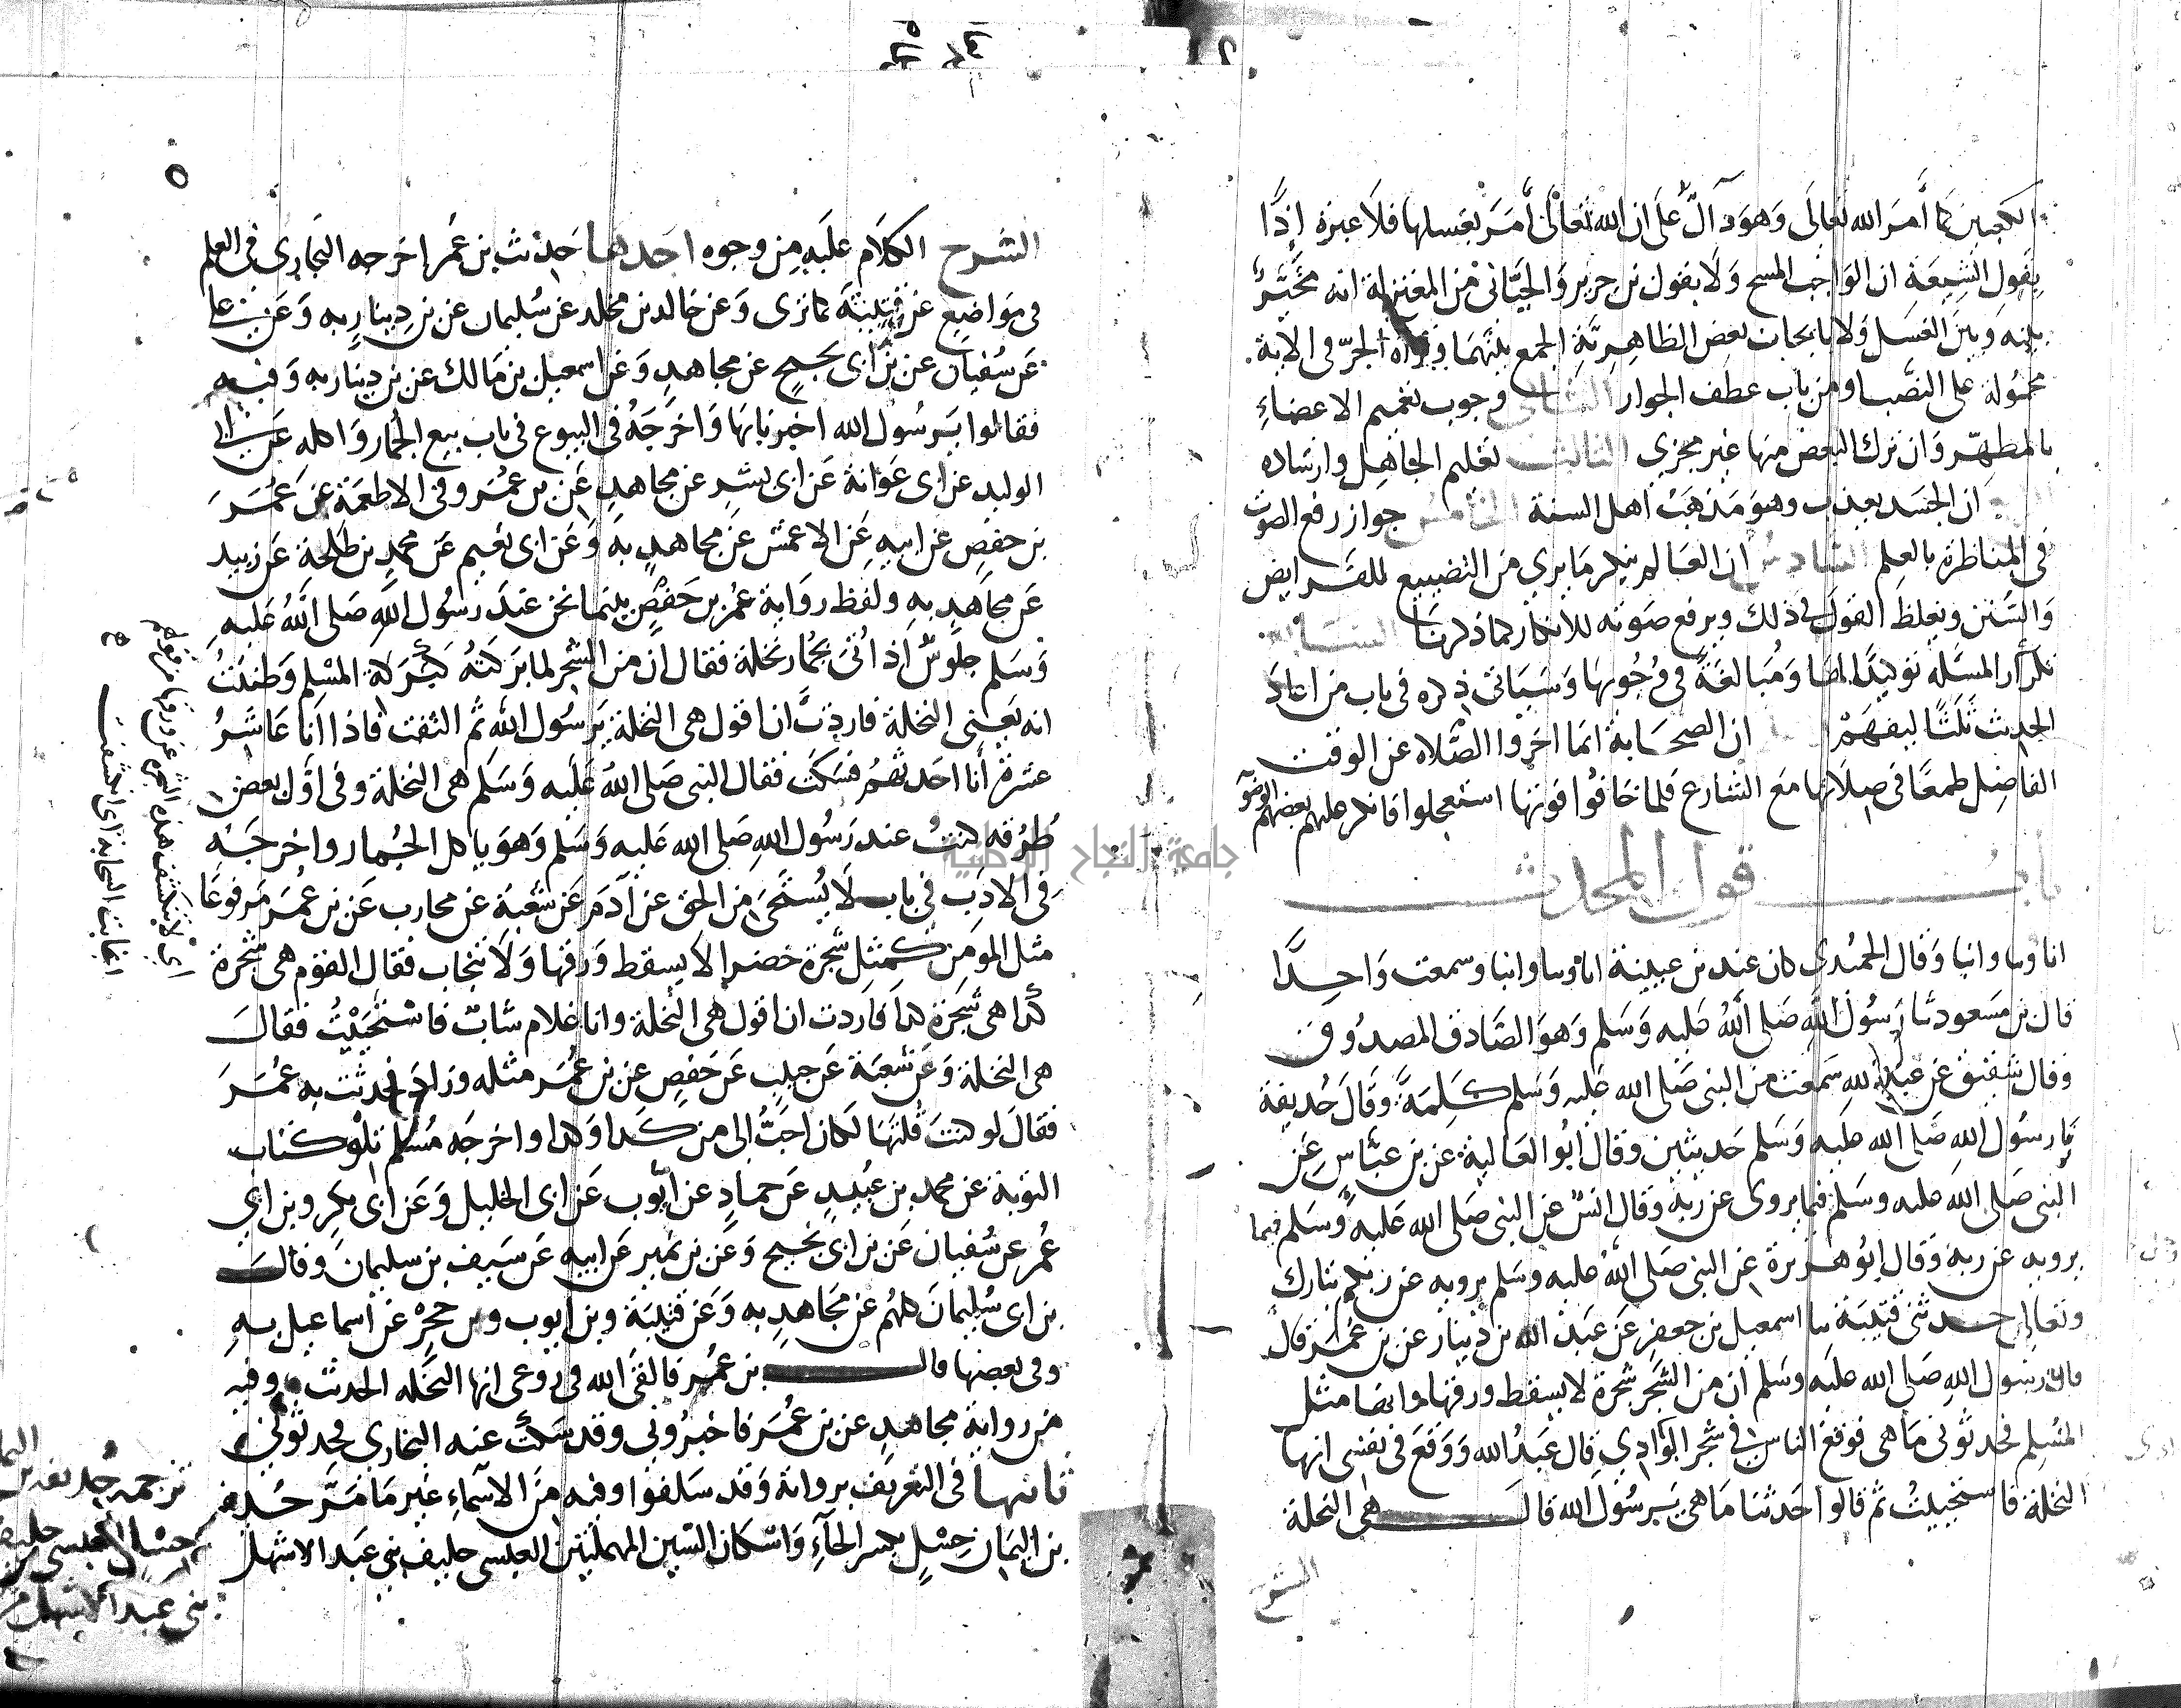 الكعبين كما أمر الله تعالى وهو دال على ان الله تعالى أمر بغسلها فلا عبرة إذًا
بقول الشيعة ان الواجب المسح ولا بقول بن جرير والجبائي من المعتزلة انه مخير
بينه وبين الغسل ولا بايجاب بعض الظاهرية الجمع بينهما وقراة الجر في الاية
محمولة على النصب او من باب عطف الجوار الثاني وجوب تعميم الاعضاء
بالمطهر وان ترك البعض منها غير مجزي الثالث تعليم الجاهل وارشاده
ان الجسد يعذب وهو مذهب اهل السنة الخامس جواز رفع الصوت
في المناظرة بالعلم السادس ان العالم ينكر ما يرى من التضييع للفرايض
والسنن ويغلظ القول في ذلك ويرفع صوته للانكار كما ذكرنا
تكرار المسلة توكيدا لها ومبالغة في وجوبها وسياتى ذكره في باب من اعاد
الحديث ثلثا ليفهم ان الصحابة انما اخروا الصلاه عن الوقت
الفاضل طمعا في صلاتها مع الشارع فلما خافوا فوتها استعجلوا فانكر عليهم بعضهم الوضوء
باب قول المحدث
انا وسا وانبا وقال الحميدي كان عند بن عيينة انا وسا وانبا وسمعت واحدًا
قال بن مسعود ثنا رسول الله صلى الله عليه وسلم وهو الصادق المصدوق
وقال شقيق عن عبد الله سمعت من النبي صلى الله عليه وسلم كلمة وقال حذيفة
ثنا رسول الله صلى الله عليه وسلم حديثين وقال ابو العالية عن بن عباس عن
النبي صلى الله عليه وسلم فيما يروى عن ربه وقال انس عن النبي صلى الله عليه وسلم فيما
يرويه عن ربه وقال ابو هريرة عن النبي صلى الله عليه وسلم يرويه عن ربكم تبارك
وتعالى حدثنى قتيبة سا اسمعيل بن جعفر عن عبد الله بن دينار عن بن عمر قال
قال رسول الله صلى الله عليه وسلم ان من الشجر شجرة لا يسقط ورقها وانها مثل
المسلم فحدثوني ما هي فوقع الناس في شجر الوادي قال عبد الله ووقع في نفسي انها
النخلة فاستحييت ثم قالوا حدثنا ما هي يرسول الله قال هي النخلة
الشرح
الشرح الكلام عليه من وجوه احدها حديث بن عمر اخرجه البخاري في العلم
في مواضع عن قتيبة كما ترى وعن خالد بن مخلد عن سليمان عن بن دينار به وعن علي
عن سفيان عن بن ابى نجيح عن مجاهد وعن اسمعيل بن مالك عن بن دينار به وفيه
فقالوا يرسول الله اخبرنا بها واخرجه في البيوع في باب بيع الجمار واكله عن ابي
الوليد عن ابى عوانة عن ابى بشر عن مجاهد عن بن عمر وفي الاطعمة عن عمر
بن حفص عن ابيه عن الاعمش عن مجاهد به وعن ابى نعيم عن محمد بن طلحة عن زبيد
عن مجاهد به ولفظ رواية عمر بن حفص بينما نحن عند رسول الله صلى الله عليه
وسلم جلوس اذ اتى بجمار نخلة فقال ان من الشجر لما بركته كبركة المسلم وظننت
انه يعنى النخلة فاردت ان اقول هي النخلة يرسول الله ثم التفت فاذا انا عاشر
عشرة أنا احدثهم فسكت فقال النبى صلى الله عليه وسلم هي النخلة وفي اول بعض
طرقه كنت عند رسول الله صلى الله عليه وسلم وهو ياكل الجمار واخرجه
في الادب في باب لا يستحى من الحق عن آدم عن شعبة عن محارب عن بن عمر مرفوعا
مثل المومن كمثل شجرة خضرا لا يسقط ورقها ولا يتحات فقال القوم هي شجرة
كذا هي شجرة كذا فاردت ان اقول هي النخلة وانا غلام شاب فاستحييت فقال
هي النخلة وعن شعبة عن خبيب عن حفص عن بن عمر مثله وزاد فحدثت به عمر
فقال لو كنت قلتها لكان احب الى من كذا وكذا واخرجه مسلم تلو كتاب
التوبة عن محمد بن عبيد عن حماد عن ايوب عن ابى الخليل وعن ابى بكر وبن ابي
عمر عن سفيان عن بن ابى نجيح وعن بن نمير عن ابيه عن سيف بن سليمان وقال
بن ابى سليمان كلهم عن مجاهد به وعن قتيبة وبن ايوب وبن حجر عن اسماعيل به
وفى بعضها قال بن عمر فالقى الله في روعى انها النخله الحديث وفيه
من رواية مجاهد عن بن عمر فاخبروني وقد سكت عنه البخاري فحدثوني
ثانيها في التعريف برواته وقد سلفوا وفيه من الاسماء غير ما مر حذيفة
بن اليمان حسل بكسر الحاء واسكان السين المهملتين العبسي حليف بني عبد الاشهل
ترجمه حذيفه بن اليما
حسل العبسي حليف
بني عبد الاشهل